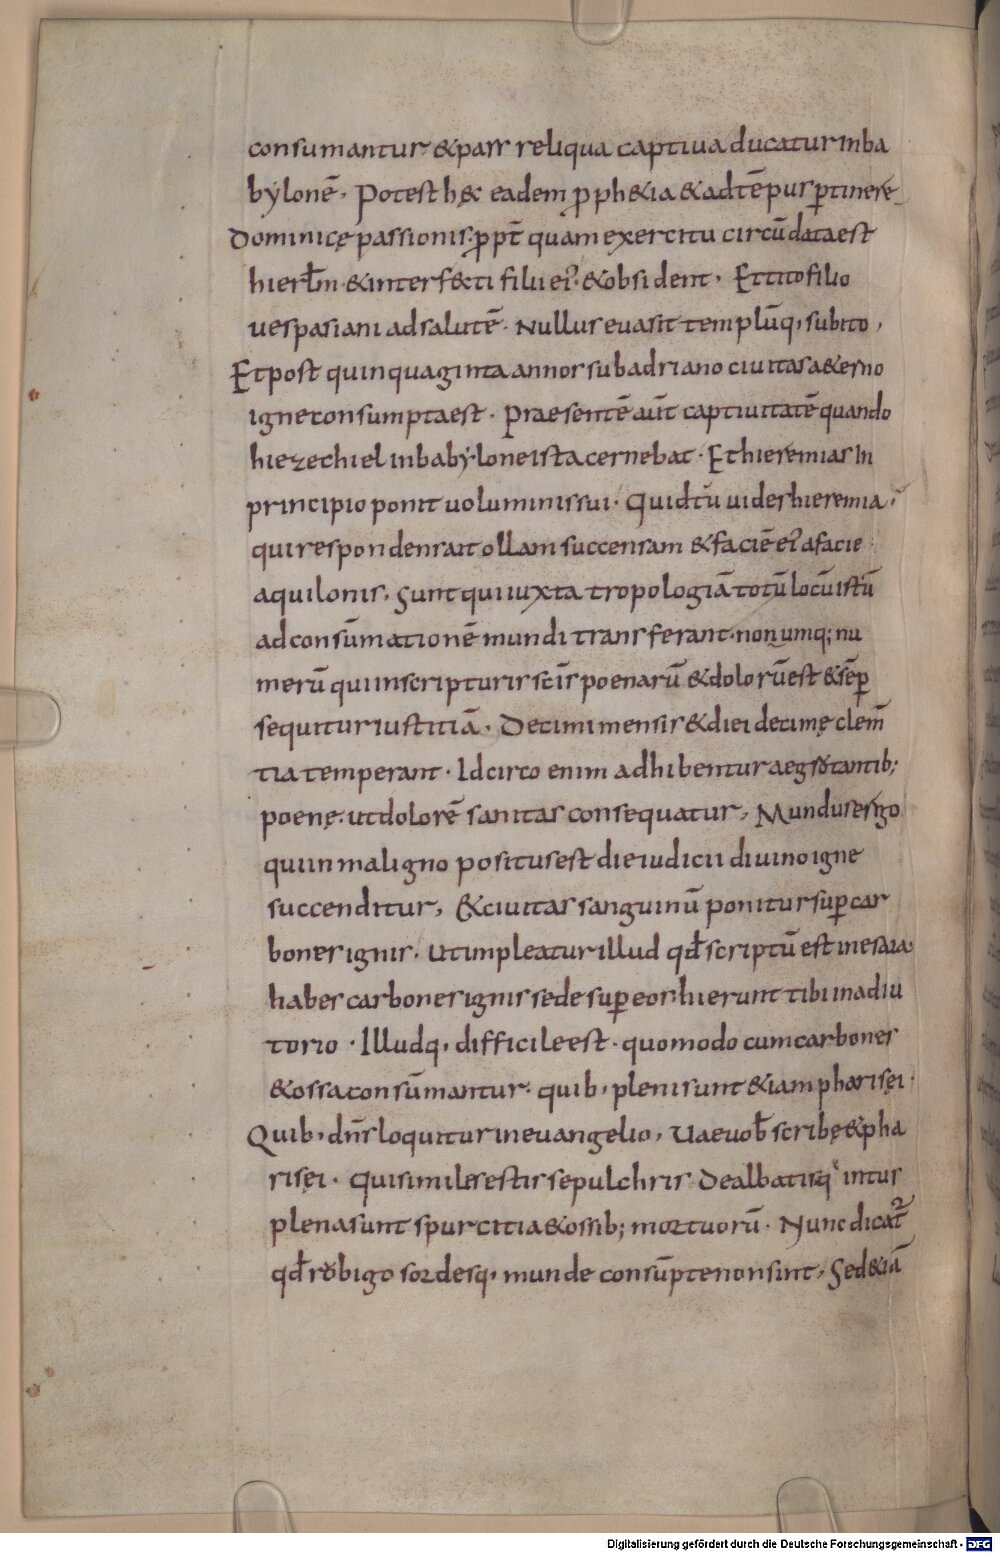 consumantur & pars reliqua captiua ducatur in ba
bylonē. Potest hęc eadem pph&ia & ad tēpus ptinere
Dominicę passionis. ppt quam exercitu circūdata est
hierłm. & interf&ti filii ei' & obsident. Et tito filio
uespasiani ad salutē. Nullus euasit templūq, subito,
Et post quinquaginta annos sub adriano ciuitas a&erno
igne consumpta est. Praesentē aūt captiuitatē quando
hiezechiel in babylone ista cernebat. Et hieremias in
principio ponit uoluminis sui. Quid tū uides hieremia.
qui respondens ait ollam succensam & faciē ei' a facie
aquilonis. Sunt qui iuxta tropologiā totū locū istū
ad consūmationē mundi transferant. nonumq; nu
merū qui in scripturis scīs poenarū & dolorū est & sēp
sequitur iustitiā. Decimi mensis & diei decimę clem̄
tia temperant. Idcirco enim adhibentur aegrotantib;
poenę. ut dolorē sanitas consequatur. Mundus ergo
qui in maligno positus est die iudicii diuino igne
succenditur, & ciuitas sanguinū ponitur sup car
bones ignis. Ut impleatur illud qđ scriptū est in esaia.
habes carbones ignis sede sup eos. hi erunt tibi in adiu
torio. Illudq, difficile est. quomodo cum carbones
& ossa consūmantur. quib, pleni sunt & iam pharisęi.
Quib, dn̄s loquitur in euangelio, Uae uoƀ scribę & pha
risęi. Qui similes estis sepulchris dealbatis q intus
plena sunt spurcitia & ossib; mortuorū. Nunc dicat̄
qđ robigo sordesq, munde consūpte non sint, Sed & iā
Digitalisierung gefördert durch die Deutsche Forschungsgemeinschaft - DFG